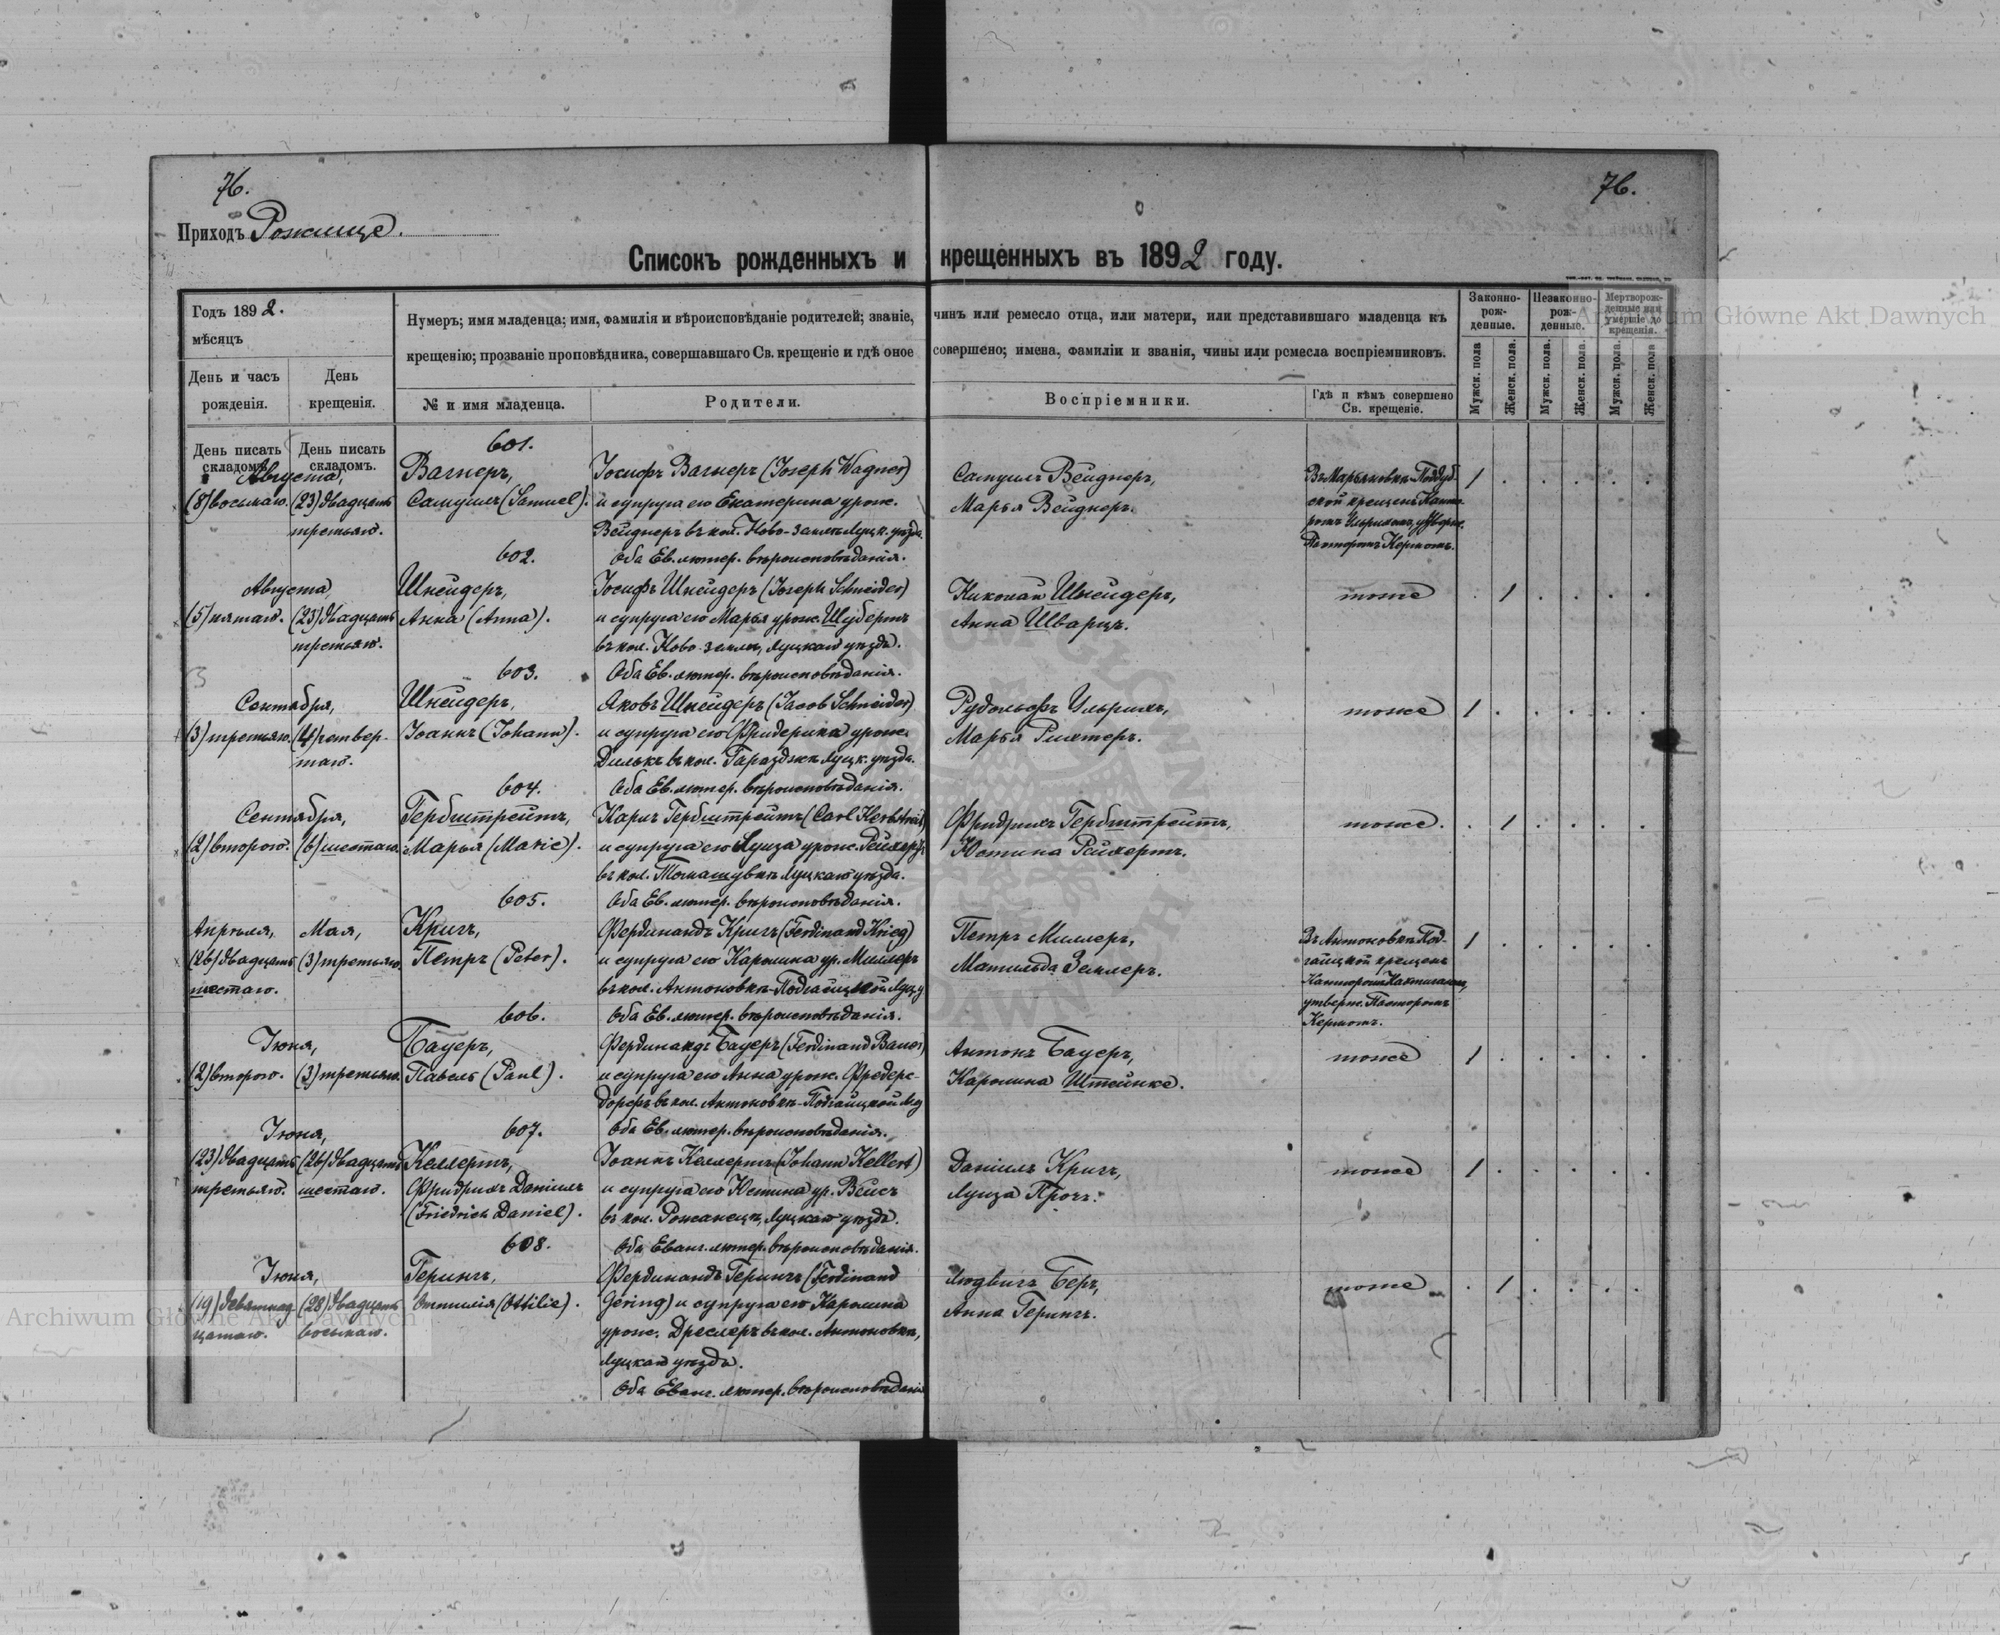 76.
76.
Приходъ Рожище.
Списокъ рожденныхъ и крещенныхъ въ 1892 году.
Годъ 1892.
мѣсяцъ
День и часъ рожденія.
День крещенія.
Нумеръ; имя младенца; имя, фамилія и вѣроисповѣданіе родителей; званіе, чинъ или ремесло отца, или матери, или представившаго младенца къ
крещенію; прозваніе проповѣдника, совершавшаго Св. крещеніе и гдѣ оное совершено; имена, фамиліи и званія, чины или ремесла воспріемниковъ.
№ и имя младенца.
Родители.
Воспріемники.
Гдѣ и кѣмъ совершено
Св. крещеніе.
Законно-рож-денные.
Незаконно-рож-денные.
Мертворож-денные или умершіе до крещенія.
Мужск. пола
Женск. пола.
Мужск. пола.
Женск. пола.
Мужск. пола.
Женск. пола
День писать складомъ.
День писать складомъ.
601.
Августа,
(8) восьмаго.
(23) двадцать третьяго.
Вагнеръ,
Самуилъ (Samuel).
Іосифъ Вагнеръ (Joseph Wagner)
и супруга его Екатерина урож.
Вейднеръ въ кол. Ново-землѣ Луцк. уѣзда.
Оба Ев. лютер. вѣроисповѣданія.
Самуилъ Вейднеръ,
Марья Вейднеръ.
Въ Марьяновкѣ-Поддуб-
ской крещенъ Канто-
ромъ Ульрихомъ, утвержд.
Пасторомъ Кермомъ.
1
602.
Августа,
(5) пятаго.
(23) двадцать третьяго.
Шнейдеръ,
Анна (Anna).
Іосифъ Шнейдеръ (Joseph Schneider)
и супруга его Марья урож. Шубертъ
въ кол. Ново-землѣ, Луцкаго уѣзда.
Оба Ев. лютер. вѣроисповѣданія.
Николай Шнейдеръ,
Анна Шварцъ.
тоже
1
603.
Сентября,
(3) третьяго.
(4) четвер-
таго.
Шнейдеръ,
Іоаннъ (Johann).
Яковъ Шнейдеръ (Jacob Schneider)
и супруга его Фридерика урож.
Дилькъ въ кол. Гараздже Луцк. уѣзда.
Оба Ев. лютер. вѣроисповѣданія.
Рудольфъ Ульрихъ,
Марья Рихтеръ.
тоже
1
604.
Сентября,
(2) второго.
(6) шестаго.
Гербштрейтъ,
Марья (Marie).
Карлъ Гербштрейтъ (Carl Herbstreit)
и супруга его Луиза урож. Рейхертъ
въ кол. Томашувкѣ Луцкаго уѣзда.
Оба Ев. лютер. вѣроисповѣданія.
Фридрихъ Гербштрейтъ,
Юстина Рейхертъ.
тоже.
1
605.
Апрѣля,
(26) двадцать
шестаго.
Мая,
(3) третьяго.
Кригъ,
Петръ (Peter).
Фердинандъ Кригъ (Ferdinand Krieg)
и супруга его Каролина ур. Миллеръ
въ кол. Антоновкѣ-Подгайцкой Луц. у
Оба Ев. лютер. вѣроисповѣданія.
Петръ Миллеръ,
Матильда Землеръ.
Въ Антоновкѣ Под-
гайцкой крещенъ
Канторомъ
утвержд. Пасторомъ
Кермомъ.
1
606.
Іюня,
(2) второго.
(3) третьяго.
Бауеръ,
Павелъ (Paul).
Фердинандъ Бауеръ (Ferdinand Bauer)
и супруга его Анна урож. Фредерс-
дорфъ въ кол. Антоновкѣ-Подгайцкой
Оба Ев. лютер. вѣроисповѣданія.
Антонъ Бауеръ,
Каролина Штейнке.
тоже
1
607.
Іюня,
(23) двадцать
третьяго.
(26) двадцать
шестаго.
Келлертъ,
Фридрихъ Даніилъ
(Friedrich Daniel).
Іоаннъ Келлертъ (Johann Kellert)
и супруга его Юстина ур. Вейсъ
въ кол. Рожанецъ, Луцкаго уѣзда.
Оба Еванг. лютер. вѣроисповѣданія.
Даніилъ Кригъ,
Луиза Прочъ.
тоже
1
608.
Іюня,
(19) девятнад-
цатаго.
(28) двадцать
восьмаго.
Герингъ,
Оттилія (Ottilie).
Фердинандъ Герингъ (Ferdinand
Göring) и супруга его Каролина
урож. Дреслеръ въ кол. Антоновкѣ,
Луцкаго уѣзда.
Оба Еванг. лютер. вѣроисповѣданія
Людвигъ Беръ,
Анна Герингъ.
тоже
1
Archiwum Główne Akt Dawnych
Archiwum Główne Akt Dawnych